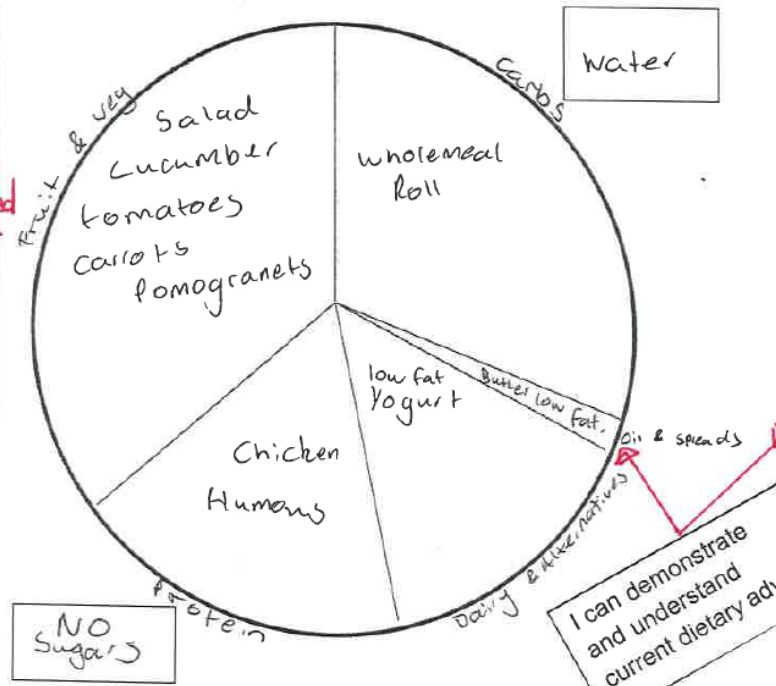 Water
Carbs
Fruit & veg
Salad
Cucumber
tomatoes
Carrots
Pomogranets
wholemeal
Roll
low fat
Yogurt
Butter low fat.
Oil & spreads
Chicken
Humons
Dairy & Alternatives
Protein
NO
Sugars
I can demonstrate
and understand
current dietary adv